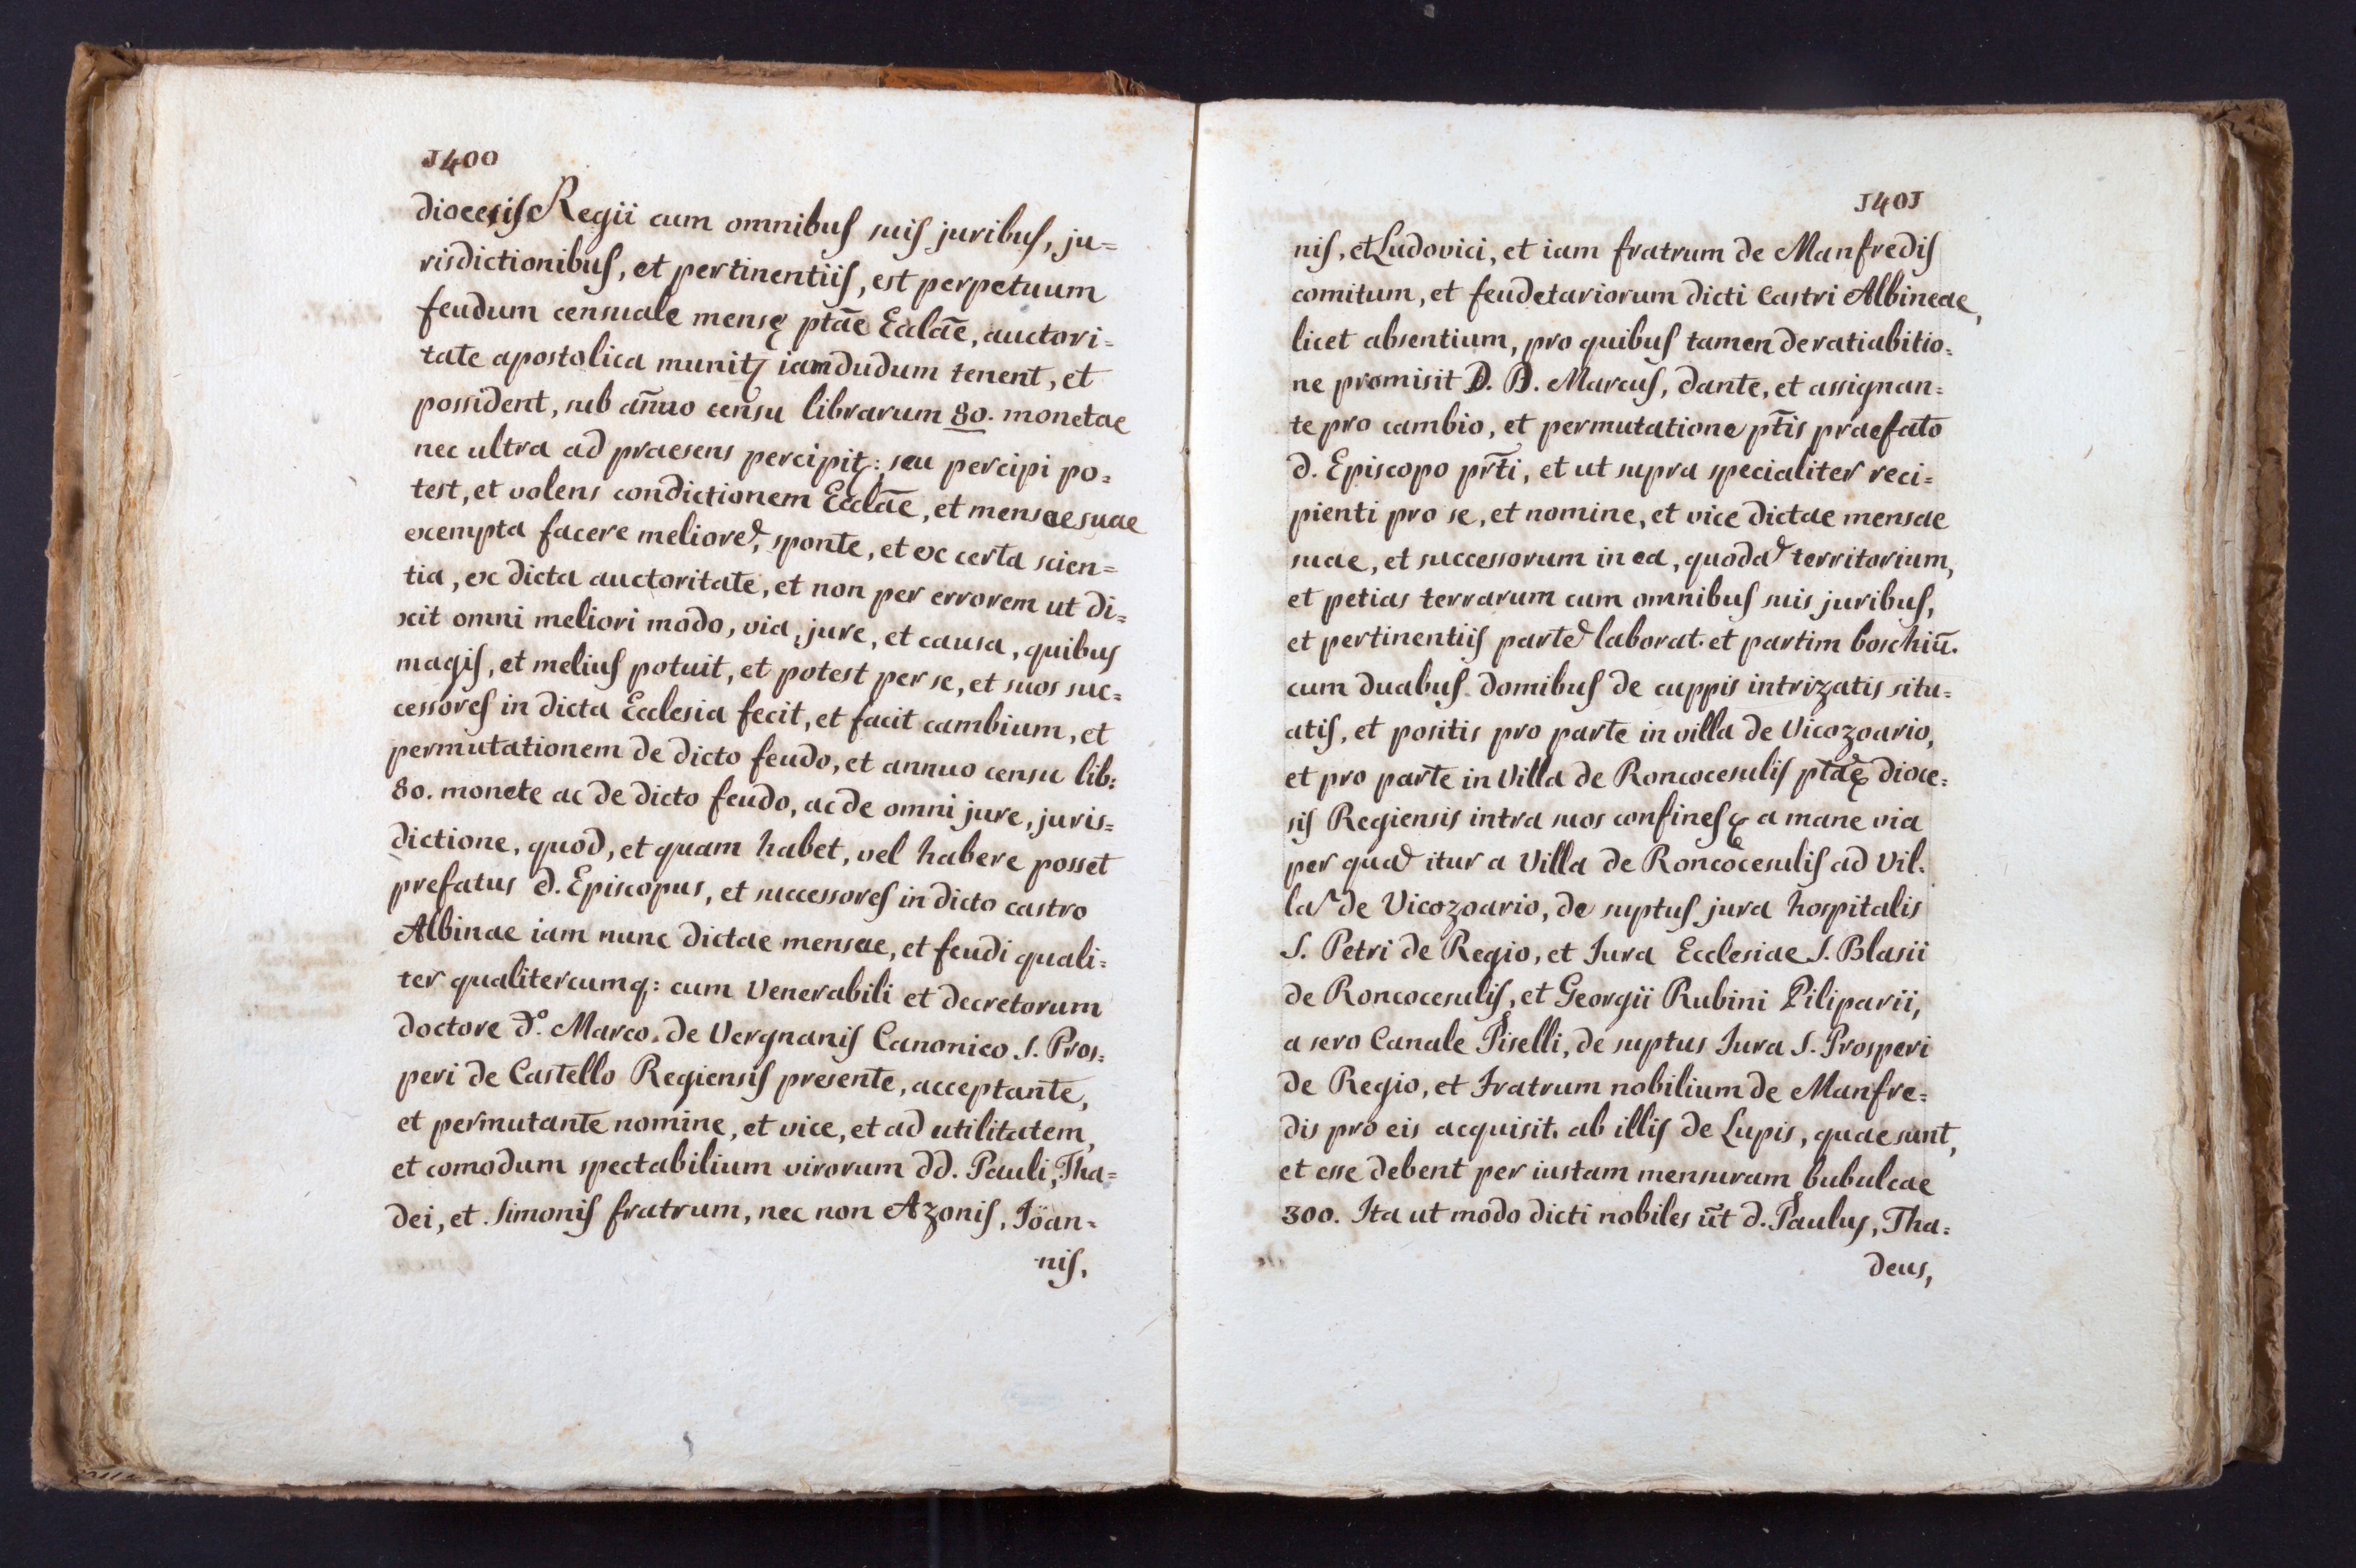 1400
diocesis Regii cum omnibus suis juribus, ju=
risdictionibus, et pertinentiis, est perpetuum
feudum censuale mensę ptāe Ecclāe, auctori=
tate apostolica munitȝ iamdudum tenent, et
possident, sub añuo censu librarum 80. monetae
nec ultra ad praesens percipitȝ: seu percipi po=
test, et volens condictionem Ecclāe, et mensae suae
exempta facere meliorē, sponte, et ex certa scien=
tia, ex dicta auctoritate, et non per errorem ut di=
xit omni meliori modo, via, jure, et causa, quibus
magis, et melius potuit, et potest per se, et suos suc=
cessores in dicta Ecclesia fecit, et facit cambium, et
permutationem de dicto feudo, et annuo censu lib:
80. monete ac de dicto feudo, ac de omni jure, juris=
dictione, quod, et quam habet, vel habere posset
prefatus d. Episcopus, et successores in dicto castro
Albinae iam nunc dictae mensae, et feudi quali=
ter qualitercumq: cum Venerabili et decretorum
doctore d.º Marco. de Vergnanis Canonico S. Pros=
peri de Castello Regiensis presente, acceptante,
et permutante nomine, et vice, et ad utilitatem,
et comodum spectabilium virorum dd. Pauli, Tha=
dei, et Simonis fratrum, nec non Azonis, Iöan=
nis,
1401
nis, et Ludovici, et iam fratrum de Manfredis
comitum, et feudetariorum dicti Castri Albineae,
licet absentium, pro quibus tamen de ratiabitio=
ne promisit D. D. Marcus, dante, et assignan=
te pro cambio, et permutatione pt̄is praefato
d. Episcopo pr̄ti, et ut supra specialiter reci=
pienti pro se, et nomine, et vice dictae mensae
suae, et successorum in ea, quodā territorium,
et petias terrarum cum omnibus suis juribus,
et pertinentiis partē laborat. et partim boschiū.
cum duabus domibus de cuppis intrizatis situ=
atis, et positis pro parte in villa de Vicozoario,
et pro parte in Villa de Roncocesulis ptāę dioce=
sis Regiensis intra suos confines a mane via
per quā itur a Villa de Roncocesulis ad Vil=
lā de Vicozoario, de suptus jura hospitalis
S. Petri de Regio, et Iura Ecclesiae S. Blasii
de Roncocesulis, et Georgii Rubini Piliparii,
a sero Canale Piselli, de suptus Iura S. Prosperi
de Regio, et Fratrum nobilium de Manfre=
dis pro eis acquisit. ab illis de Lupis, quae sunt,
et esse debent per iustam mensuram bubulcae
300. Ita ut modo dicti nobiles ūt d. Paulus, Tha=
deus,